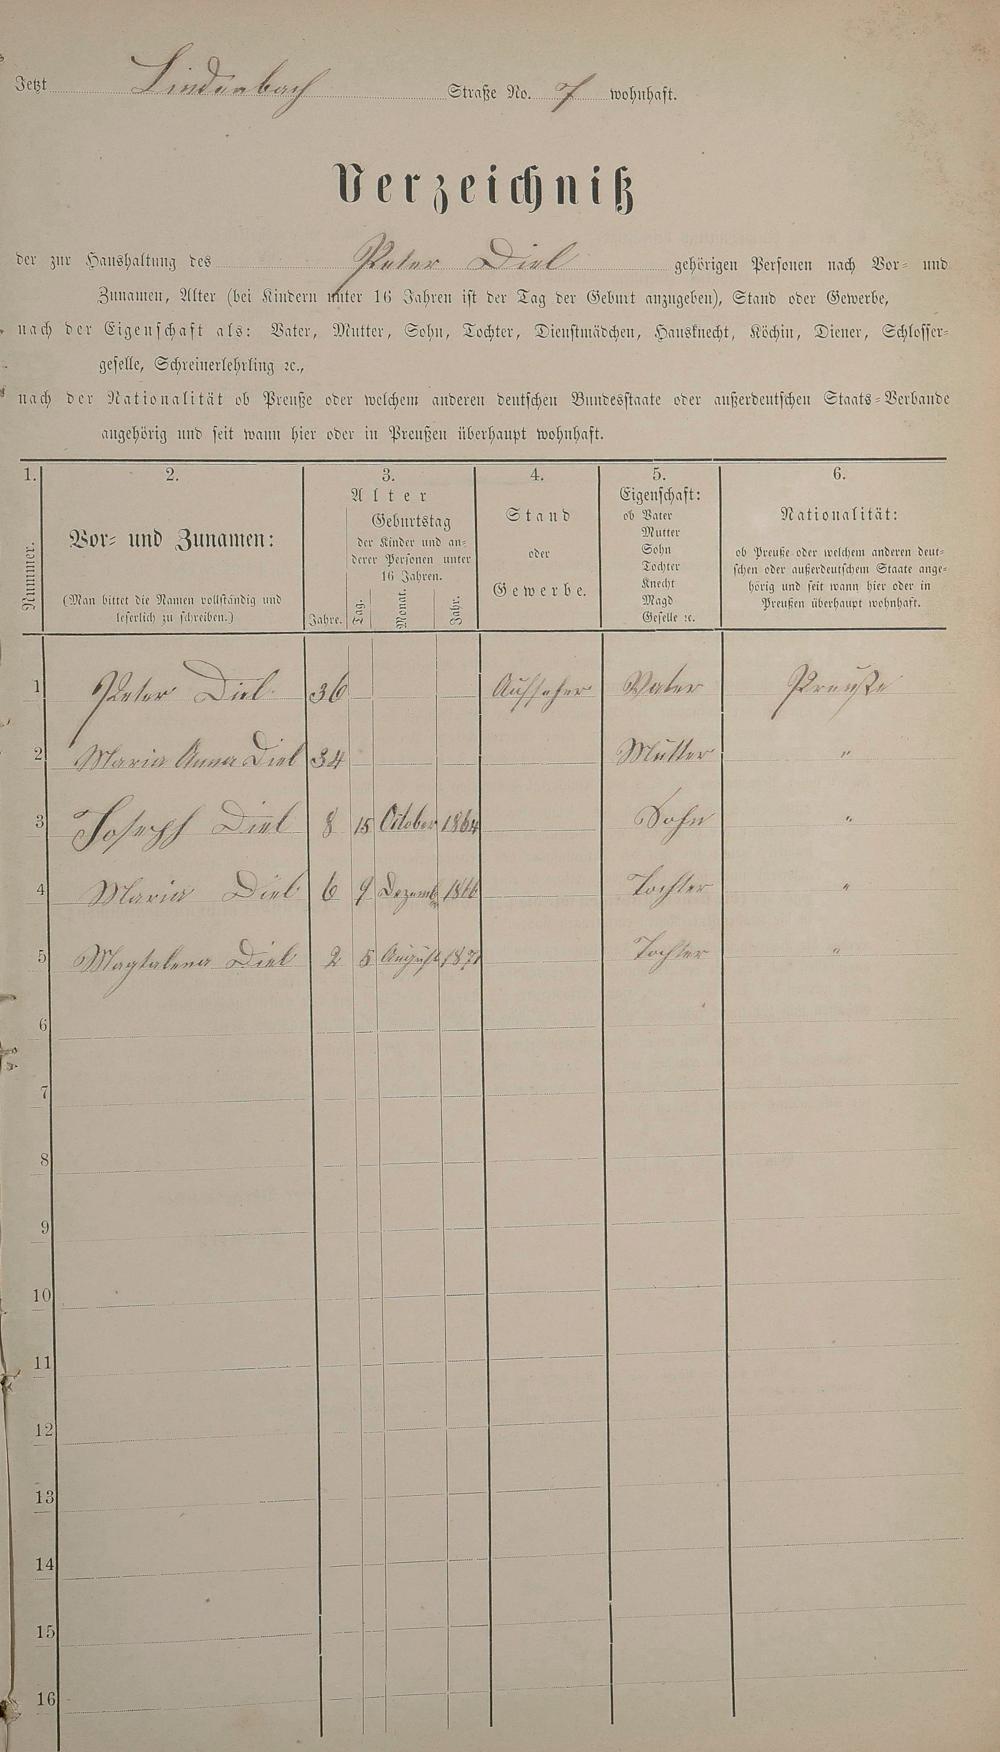 Jetzt Lindenbach Straße No. 7 wohnhaft.
Verzeichniß
der zur Haushaltung des Peter Diel gehörigen Personen nach Vor- und
Zunamen, Alter (bei Kindern unter 16 Jahren ist der Tag der Geburt anzugeben), Stand oder Gewerbe,
nach der Eigenschaft als: Vater, Mutter, Sohn, Tochter, Dienstmädchen, Hausknecht, Köchin, Diener, Schlosser-
geselle, Schreinerlehrling ꝛc.,
nach der Nationalität ob Preuße oder welchem anderen deutschen Bundesstaate oder außerdeutschen Staats-Verbande
angehörig und seit wann hier oder in Preußen überhaupt wohnhaft.
1. 2. 3. 4. 5. 6.
Nummer.
Vor- und Zunamen:
(Man bittet die Namen vollständig und
leserlich zu schreiben.)
Alter
Geburtstag
der Kinder und an-
derer Personen unter
16 Jahren.
Jahre. Tag. Monat. Jahr.
Stand
oder
Gewerbe.
Eigenschaft:
ob Vater
Mutter
Sohn
Tochter
Knecht
Magd
Geselle ꝛc.
Nationalität:
ob Preuße oder welchem anderen deut-
schen oder außerdeutschem Staate ange-
hörig und seit wann hier oder in
Preußen überhaupt wohnhaft.
1 Peter Diel 36 Aufseher Vater Preuße
2 Maria Anna Diel 34 Mutter "
3 Joseph Diel 8 15 October 1864 Sohn "
4 Maria Diel 6 9 Dezemb 1866 Tochter "
5 Magtalena Diel 2 5 August 1871 Tochter "
6
7
8
9
10
11
12
13
14
15
16